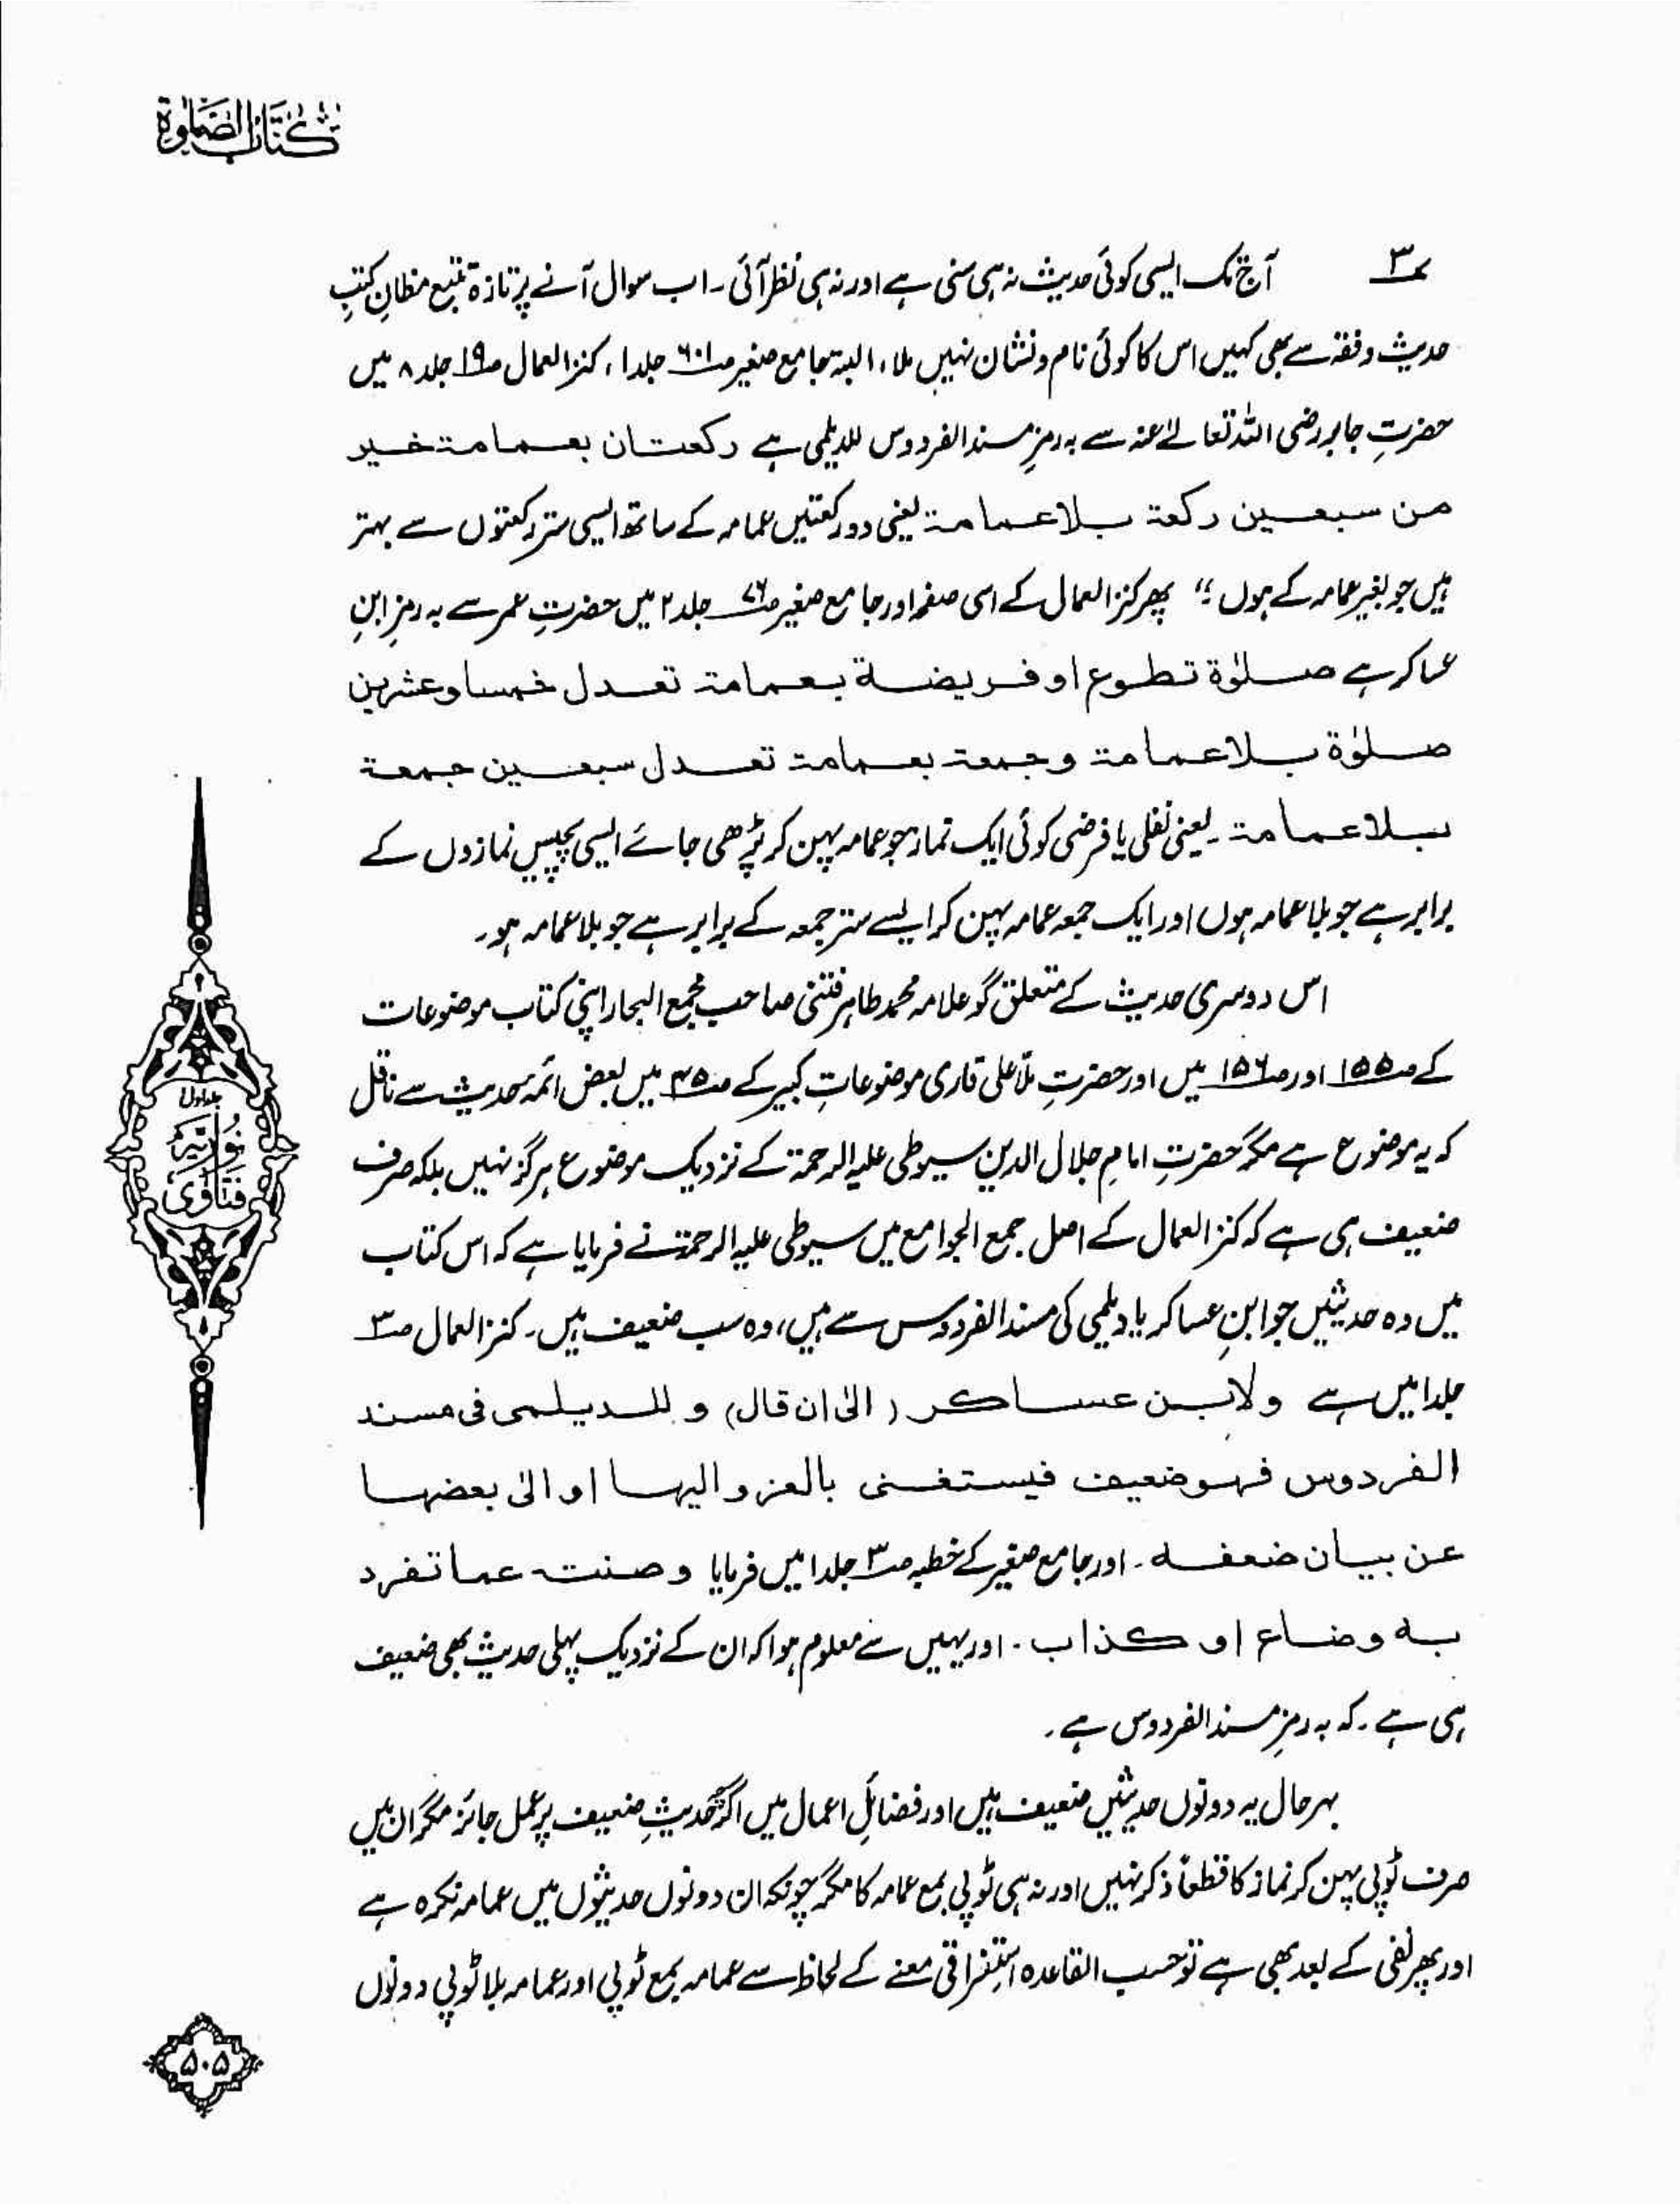 كتاب الصلوة
۳ آج تک ایسی کوئی حدیث نہ ہی سنی ہے اور نہ ہی نظر آئی۔ اب سوال آنے پر تازہ تتبع مظانِ کتبِ
حدیث و فقہ سے بھی کہیں اس کا کوئی نام و نشان نہیں ملا، البتہ جامع صغیر صـ ۶۰۱ جلد ۱، کنز العمال صـ ۱۹ جلد ۸ میں
حضرتِ جابر رضی اللہ تعالےٰ عنہ سے بہ رمزِ مسند الفردوس للدیلمی ہے رکعتان بعمامۃ خیر
من سبعین رکعۃ بلا عمامۃ یعنی دو رکعتیں عمامہ کے ساتھ ایسی ستر رکعتوں سے بہتر
ہیں جو بغیر عمامہ کے ہوں ؛“ پھر کنز العمال کے اسی صفحہ اور جامع صغیر صـ جلد ۲ میں حضرتِ عمر سے بہ رمزِ ابنِ
عساکر ہے صلوٰۃ تطوع او فریضۃ بعمامۃ تعدل خمسا وعشرین
صلوٰۃ بلا عمامۃ وجمعۃ بعمامۃ تعدل سبعین جمعۃ
بلا عمامۃ۔ یعنی نفلی یا فرضی کوئی ایک نماز جو عمامہ پہن کر پڑھی جائے ایسی پچیس نمازوں کے
برابر ہے جو بلا عمامہ ہوں اور ایک جمعہ عمامہ پہن کر ایسے ستر جمعہ کے برابر ہے جو بلا عمامہ ہو۔
اس دوسری حدیث کے متعلق گو علامہ محمد طاہر فتنی صاحب مجمع البحار اپنی کتاب موضوعات
کے صـ ۱۵۵ اور صـ ۱۵۶ میں اور حضرتِ ملّا علی قاری موضوعاتِ کبیر کے صـ ۴۵ میں بعض ائمۂ حدیث سے ناقل
کہ یہ موضوع ہے مگر حضرتِ امامِ جلال الدین سیوطی علیہ الرحمۃ کے نزدیک موضوع ہرگز نہیں بلکہ صرف
ضعیف ہی ہے کہ کنز العمال کے اصل جمع الجوامع میں سیوطی علیہ الرحمۃ نے فرمایا ہے کہ اس کتاب
میں وہ حدیثیں جو ابنِ عساکر یا دیلمی کی مسند الفردوس سے ہیں، وہ سب ضعیف ہیں۔ کنز العمال صـ ۳
جلد ۱ میں ہے ولابن عساکر (الیٰ ان قال) و للدیلمی فی مسند
الفردوس فہو ضعیف فیستغنی بالعزو الیہا او الیٰ بعضہا
عن بیان ضعفہ۔ اور جامع صغیر کے خطبہ صـ ۳ جلد ۱ میں فرمایا وصنتہ عما تفرد
بہ وضاع او کذاب۔ اور یہیں سے معلوم ہوا کہ ان کے نزدیک پہلی حدیث بھی ضعیف
ہی ہے۔ کہ بہ رمزِ مسند الفردوس ہے۔
بہر حال یہ دونوں حدیثیں ضعیف ہیں اور فضائلِ اعمال میں اگرچہ حدیثِ ضعیف پر عمل جائز مگر ان میں
صرف ٹوپی پہن کر نماز کا قطعاً ذکر نہیں اور نہ ہی ٹوپی بمع عمامہ کا مگر چونکہ ان دونوں حدیثوں میں عمامہ نکرہ ہے
اور پھر نفی کے بعد بھی ہے تو حسب القاعدہ استغراقی معنے کے لحاظ سے عمامہ بمع ٹوپی اور عمامہ بلا ٹوپی دونوں
جلد اول
نوریہ
فتاوی
۵۰۵